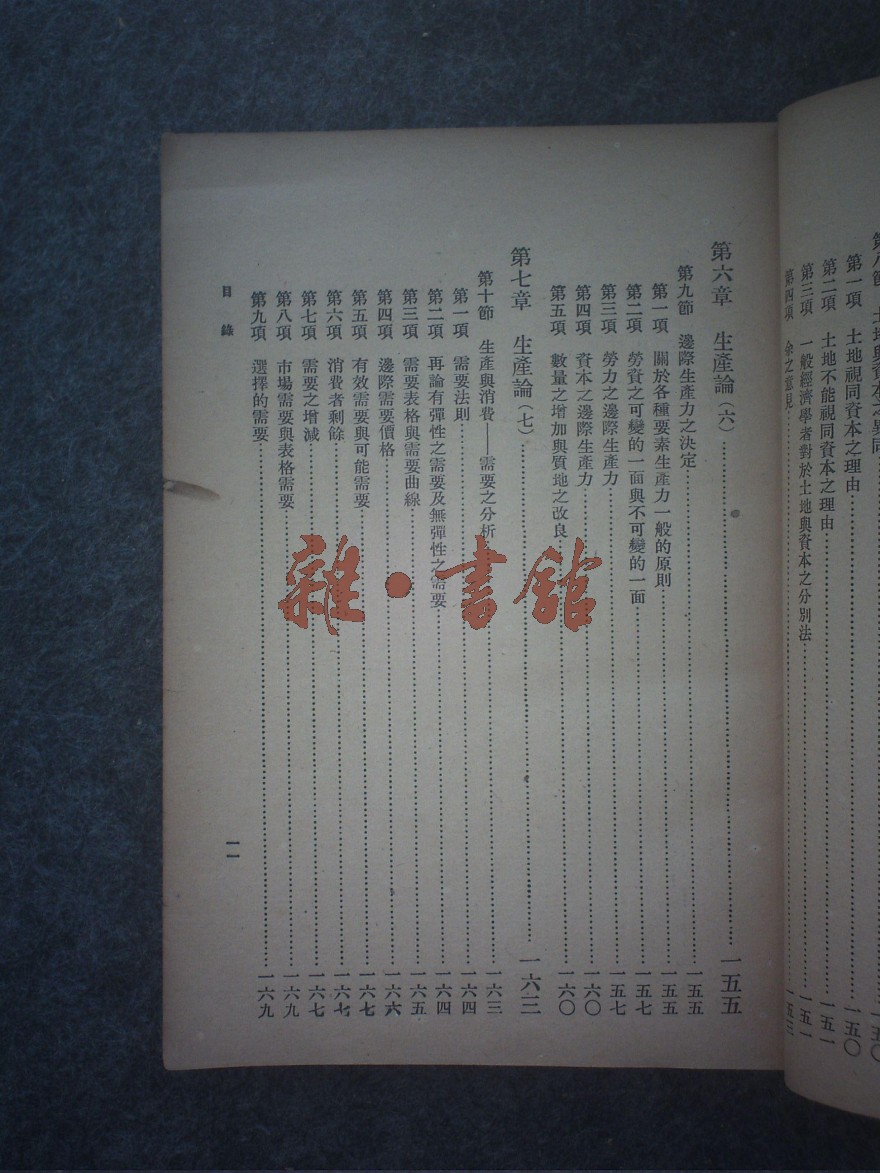 第八節 土地與資本之異同……一五〇
第一項 土地視同資本之理由……一五〇
第二項 土地不能視同資本之理由……一五一
第三項 一般經濟學者對於土地與資本之分別法……一五一
第四項 余之意見……一五三
第六章 生產論(六)……一五五
第九節 邊際生產力之決定……一五五
第一項 關於各種要素生產力一般的原則……一五五
第二項 勞資之可變的一面與不可變的一面……一五七
第三項 勞力之邊際生產力……一五七
第四項 資本之邊際生產力……一六〇
第五項 數量之增加與質地之改良……一六〇
第七章 生產論(七)……一六三
第十節 生產與消費——需要之分析……一六三
第一項 需要法則……一六四
第二項 再論有彈性之需要及無彈性之需要……一六四
第三項 需要表格與需要曲線……一六五
第四項 邊際需要價格……一六六
第五項 有效需要與可能需要……一六七
第六項 消費者剩餘……一六七
第七項 需要之增減……一六七
第八項 市場需要與表格需要……一六九
第九項 選擇的需要……一六九
目錄
一一
雜·書館